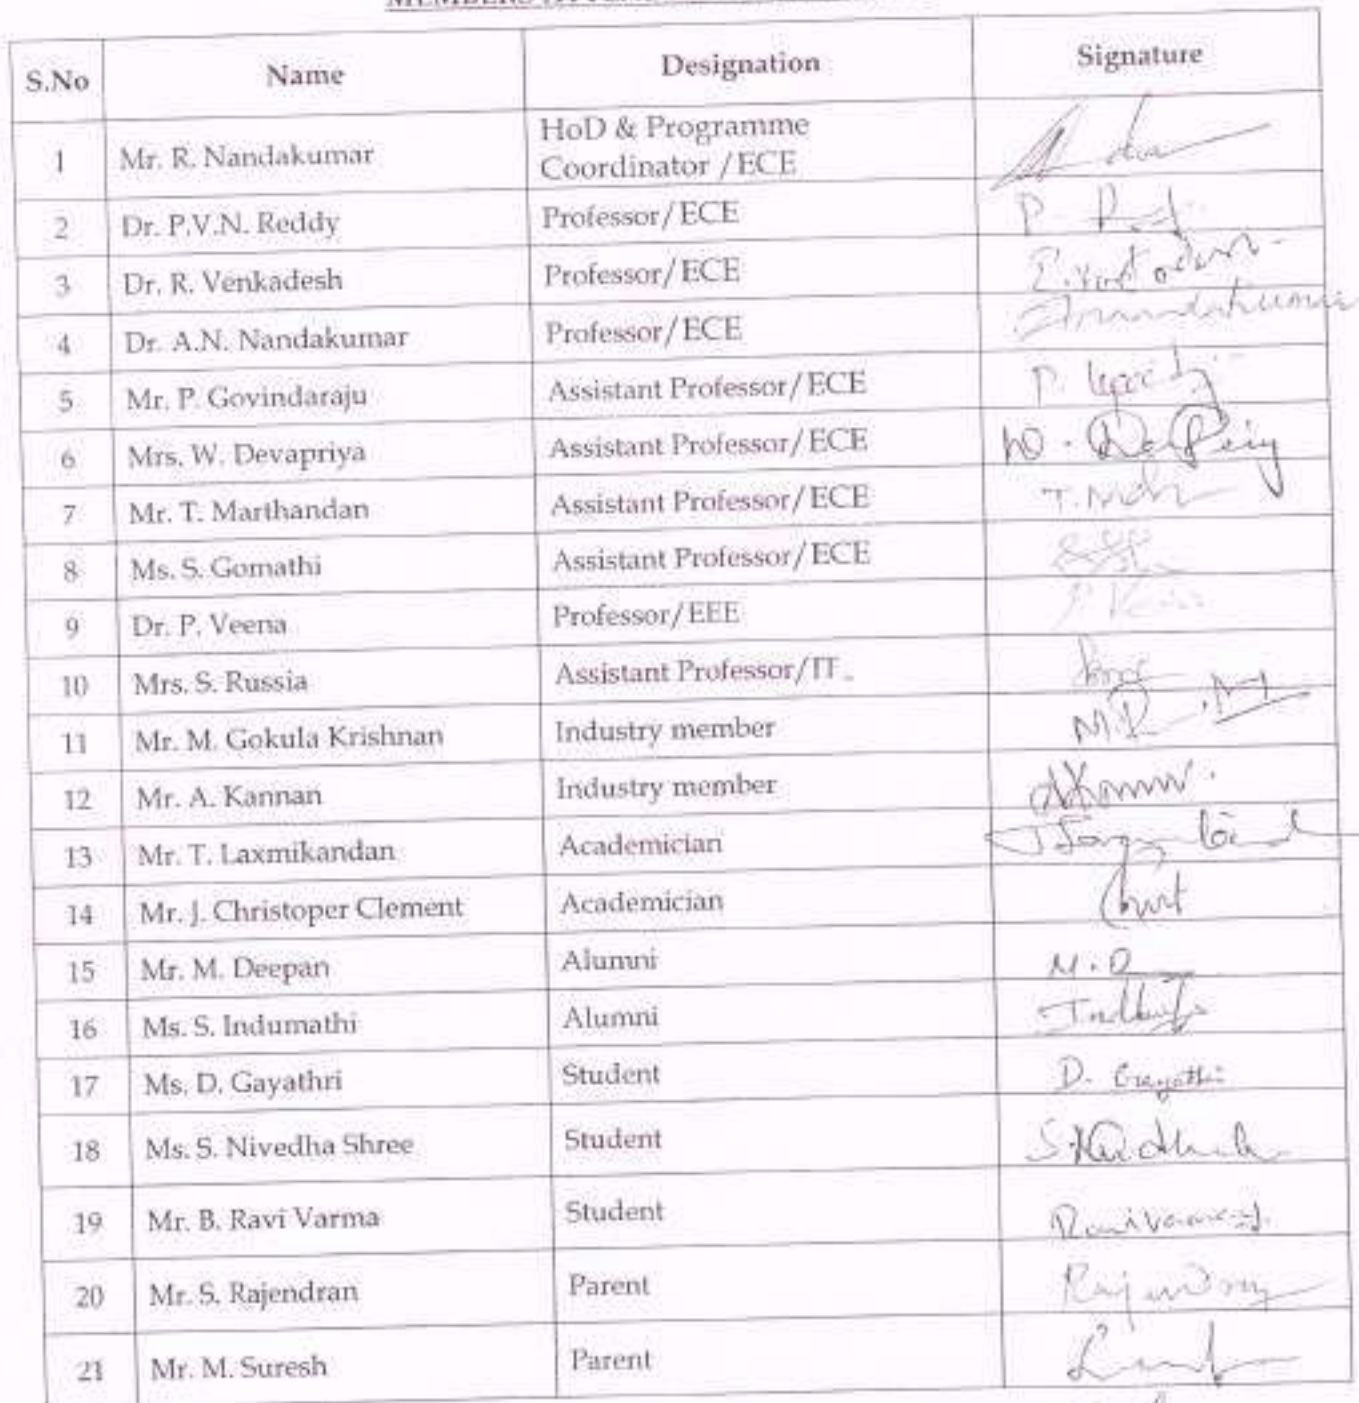 MEMBERS
S.No Name Designation Signature
1 Mr. R. Nandakumar HoD & Programme
Coordinator /ECE
2 Dr. P.V.N. Reddy Professor/ECE
3 Dr. R. Venkadesh Professor/ECE
4 Dr. A.N. Nandakumar Professor/ECE
5 Mr. P. Govindaraju Assistant Professor/ECE
6 Mrs. W. Devapriya Assistant Professor/ECE
7 Mr. T. Marthandan Assistant Professor/ECE
8 Ms. S. Gomathi Assistant Professor/ECE
9 Dr. P. Veena Professor/EEE
10 Mrs. S. Russia Assistant Professor/IT
11 Mr. M. Gokula Krishnan Industry member
12 Mr. A. Kannan Industry member
13 Mr. T. Laxmikandan Academician
14 Mr. J. Christoper Clement Academician
15 Mr. M. Deepan Alumni M.D
16 Ms. S. Indumathi Alumni
17 Ms. D. Gayathri Student D. Gayathri
18 Ms. S. Nivedha Shree Student
19 Mr. B. Ravi Varma Student
20 Mr. S. Rajendran Parent
21 Mr. M. Suresh Parent